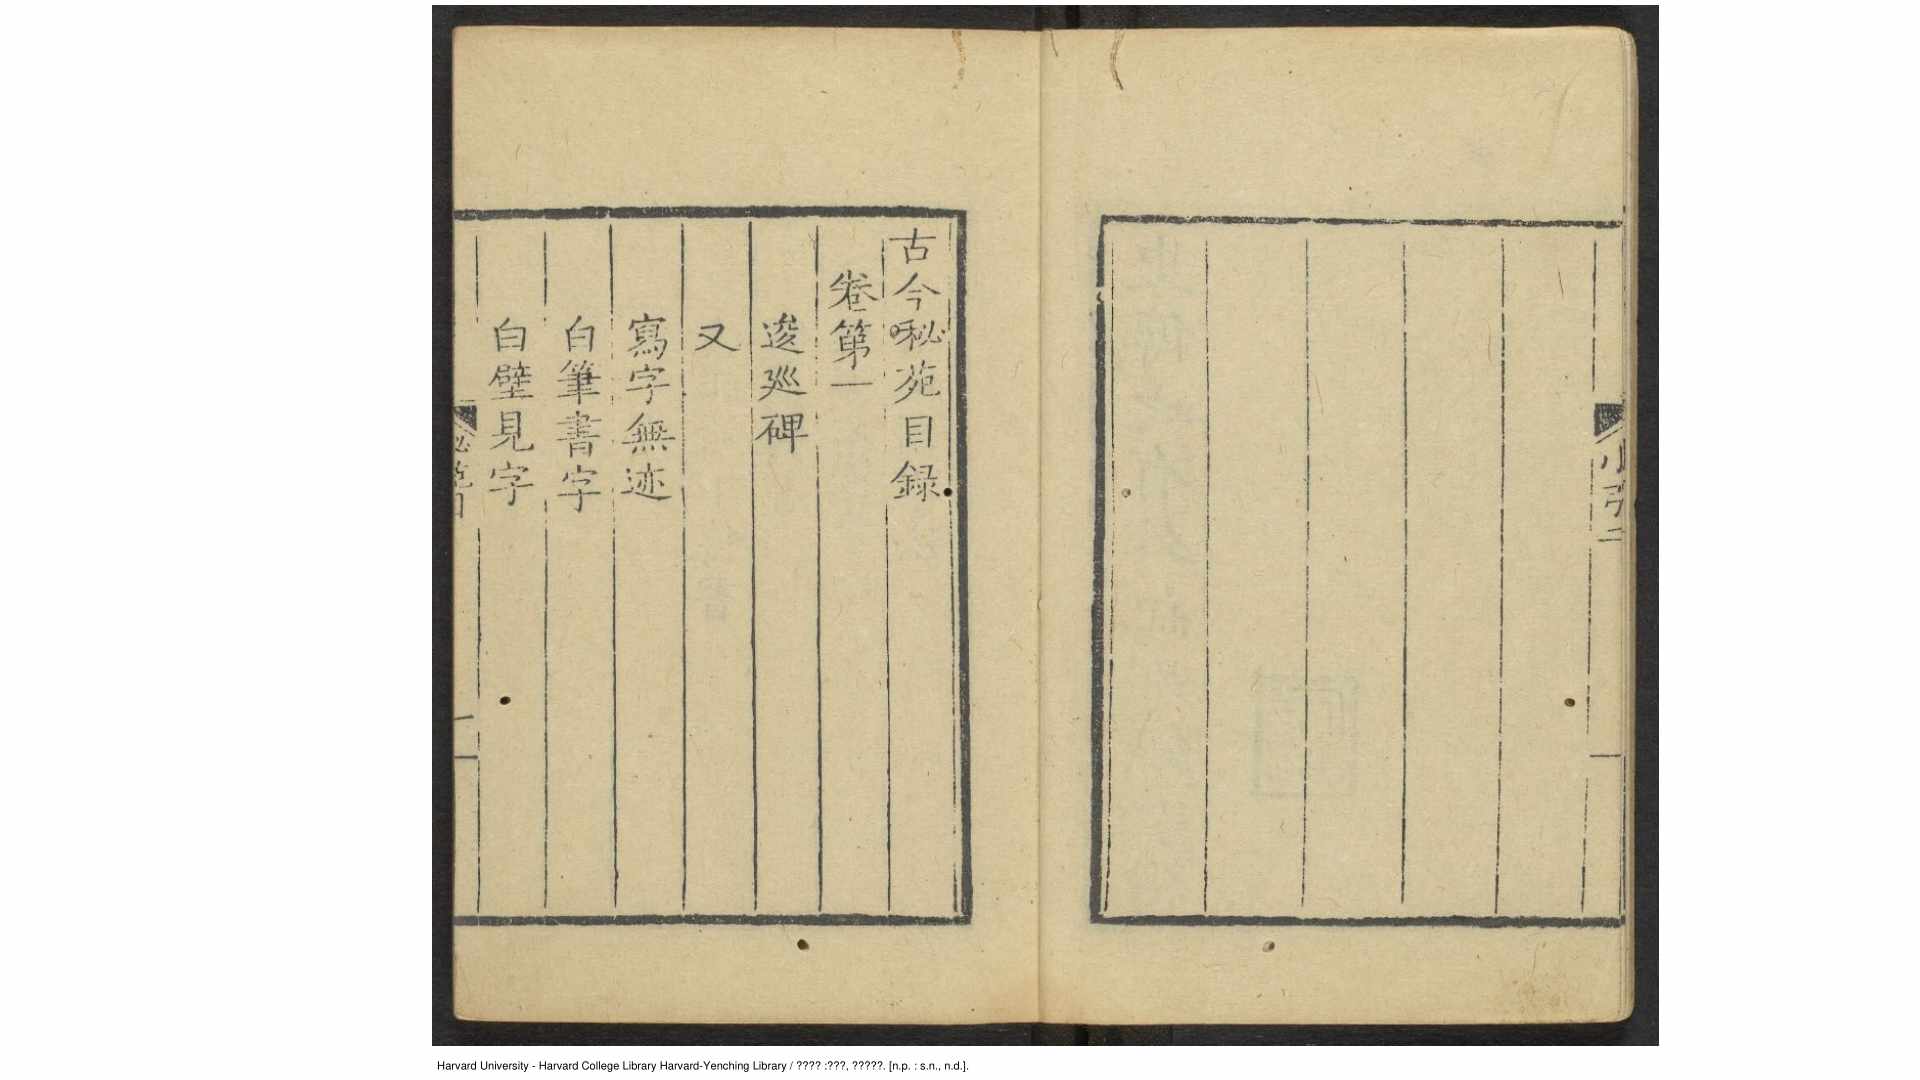 小引二
古今秘苑目録
卷第一
逡廵碑
又
寫字無迹
白筆書字
白壁見字
Harvard University - Harvard College Library Harvard-Yenching Library / ???? :???, ?????. [n.p. : s.n., n.d.].